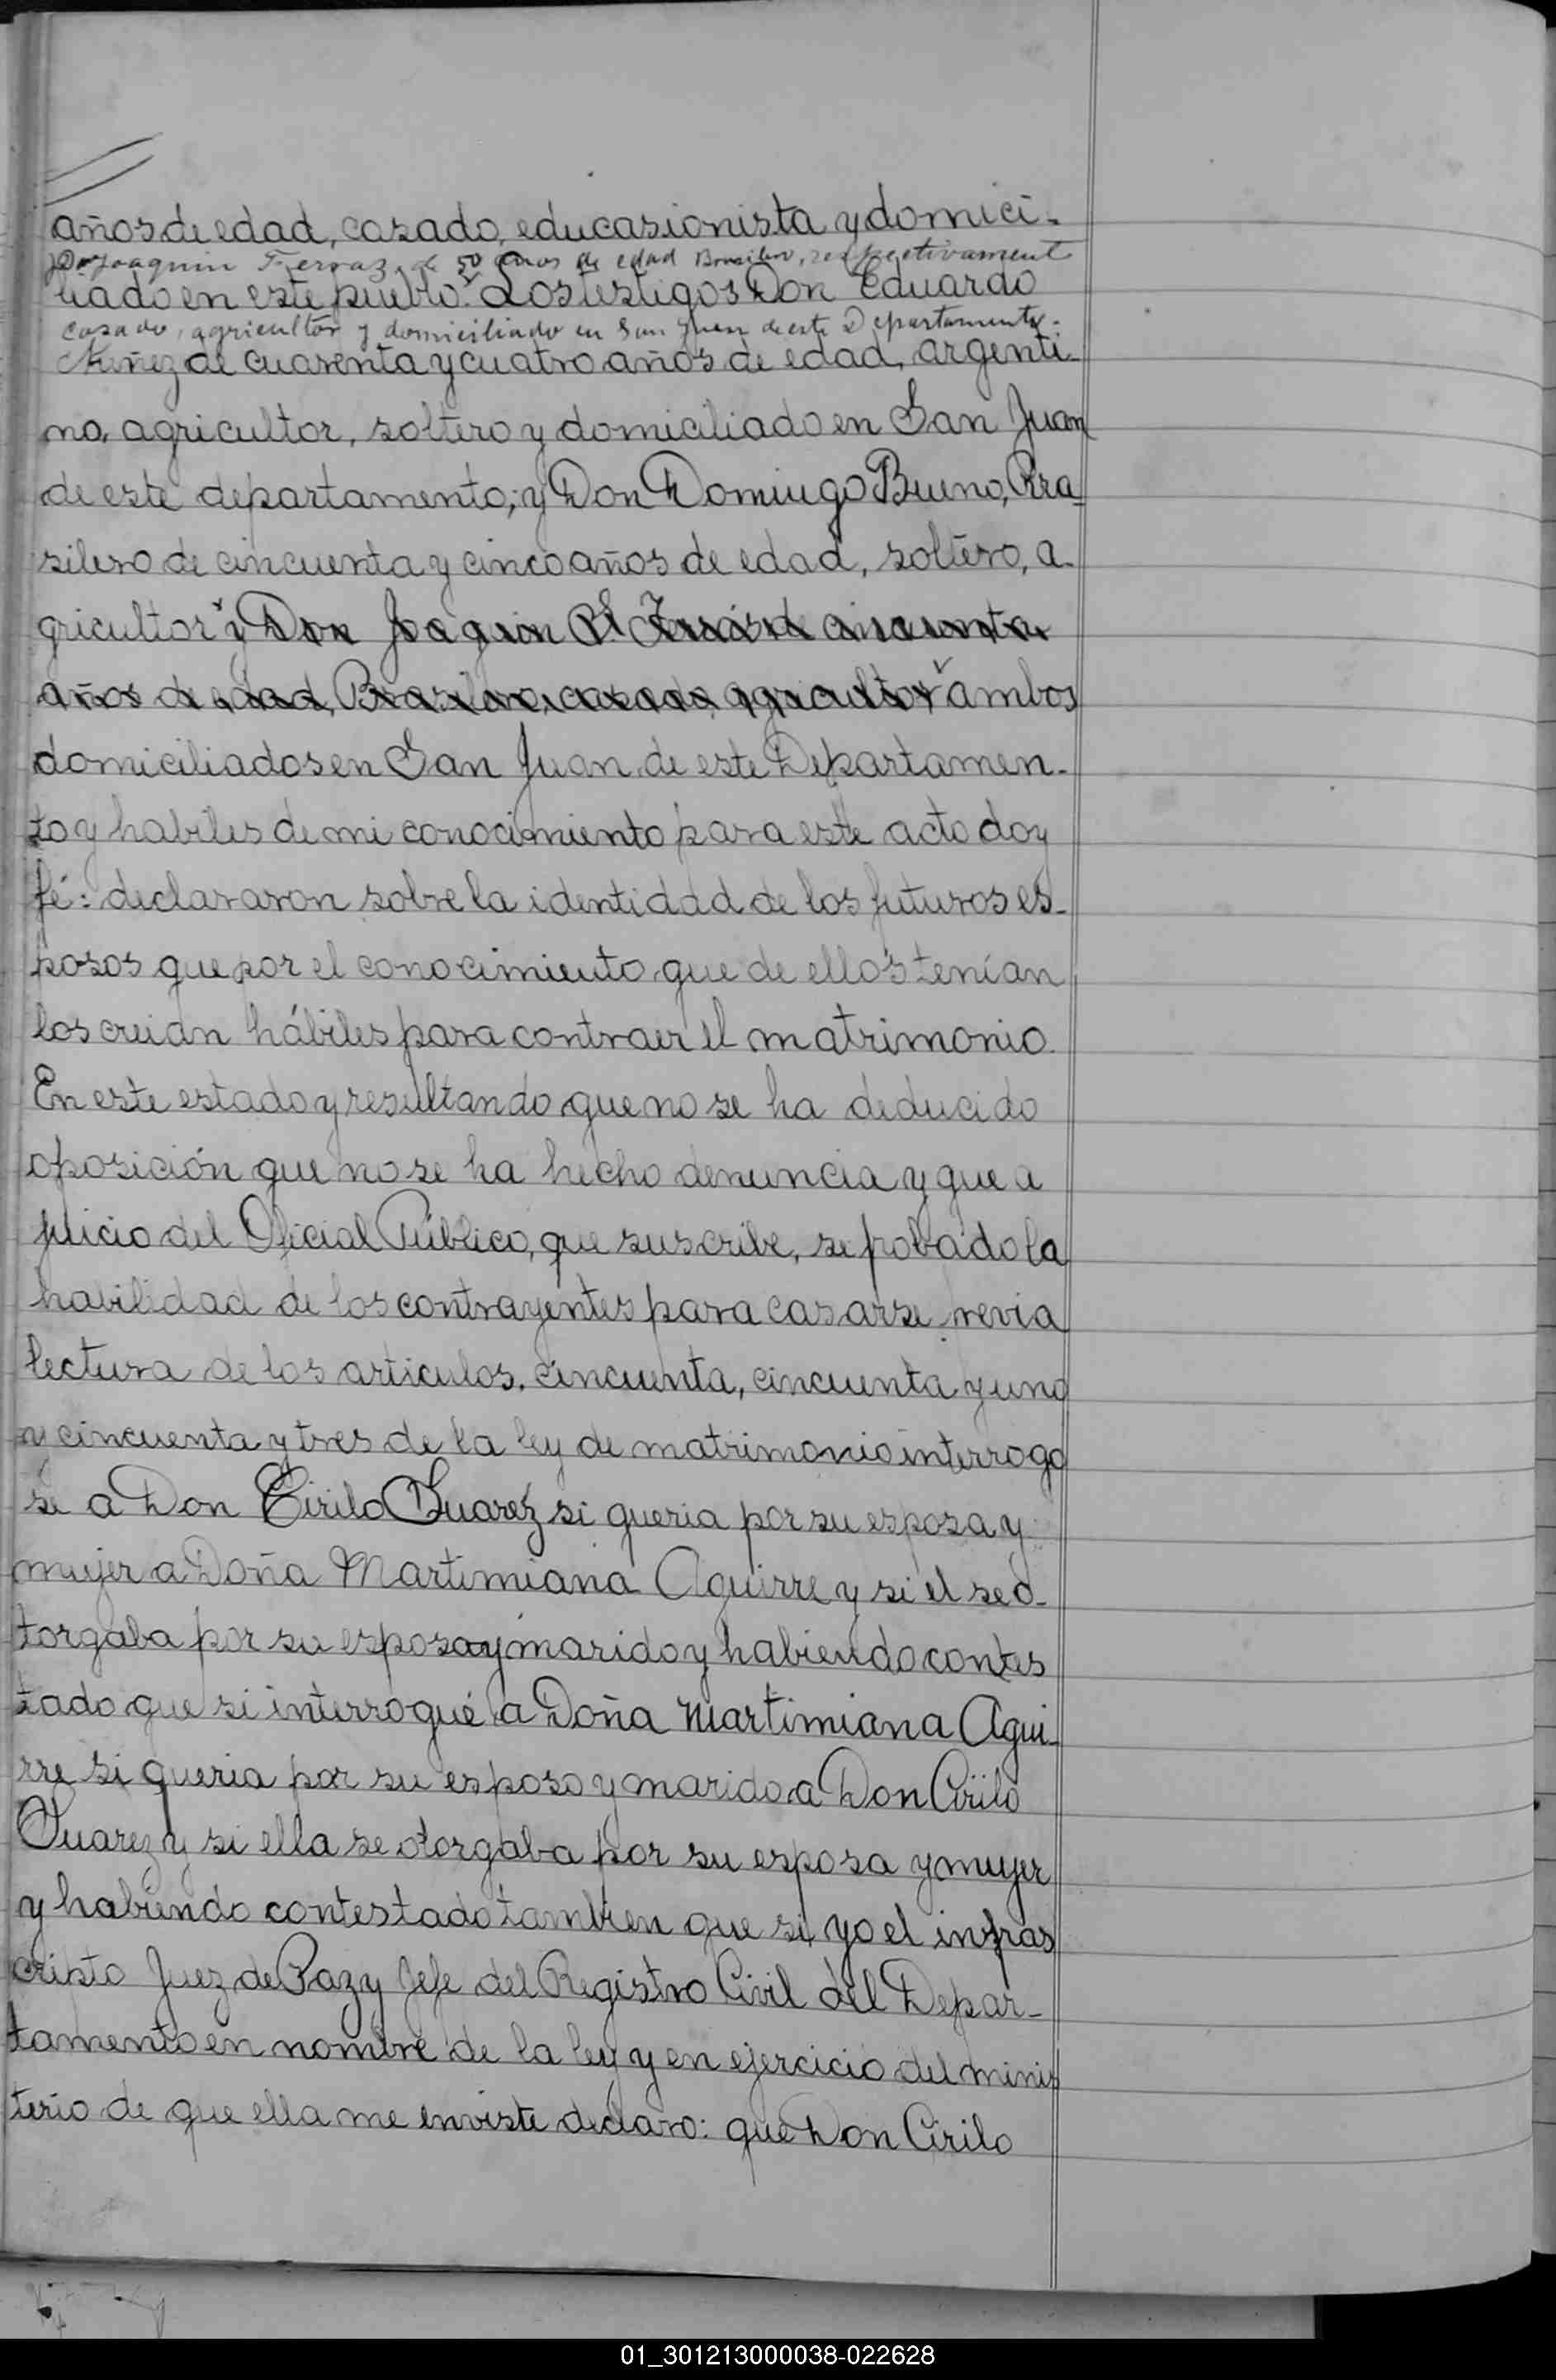 años de edad, casado, educasionista y domici-
y Dn Joaquin Ferraz, de 50 años de edad Brasilero, respectivament
liado en este pueblo. Los testigos Don Eduardo
casado, agricultor y domiciliado en San Juan de este Departamento.
Nuñez de cuarenta y cuatro años de edad, argenti-
no, agricultor, soltero y domiciliado en San Juan
de este departamento; y Don Domingo Bueno, Bra-
silero de cincuenta y cinco años de edad, soltero, a-
gricultor y Don Joaquin de cincuenta
años de edad, Brasilero, casado, agricultor ambos
domiciliados en San Juan, de este Departamen-
to y habiles de mi conocimiento para este acto doy
fé: declararon sobre la identidad de los futuros es-
posos que por el conocimiento que de ellos tenían
los creian hábiles para contraer el matrimonio.
En este estado y resultando que no se ha deducido
oposición que no se ha hecho denuncia y que a
juicio del Oficial Público, que suscribe, se probado la
habilidad de los contrayentes para casarse previa
lectura de los articulos, cincuenta, cincuenta y uno
y cincuenta y tres de la ley de matrimonio interrogo
se a Don Cirilo Suarez si queria por su esposa y
mujer a Doña Martimiana Aguirre y si el se o-
torgaba por su esposo y marido y habiendo contes
tado que si interrogué a Doña Martimiana Agui-
rre si queria por su esposo y marido a Don Cirilo
Suarez y si ella se otorgaba por su esposa y mujer
y habiendo contestado tambien que si yo el infras
cripto Juez de Paz y Jefe del Registro Civil del Depar-
tamento en nombre de la ley y en ejercicio del minis
terio de que ella me enviste declaro: que Don Cirilo
01_301213000038-022628